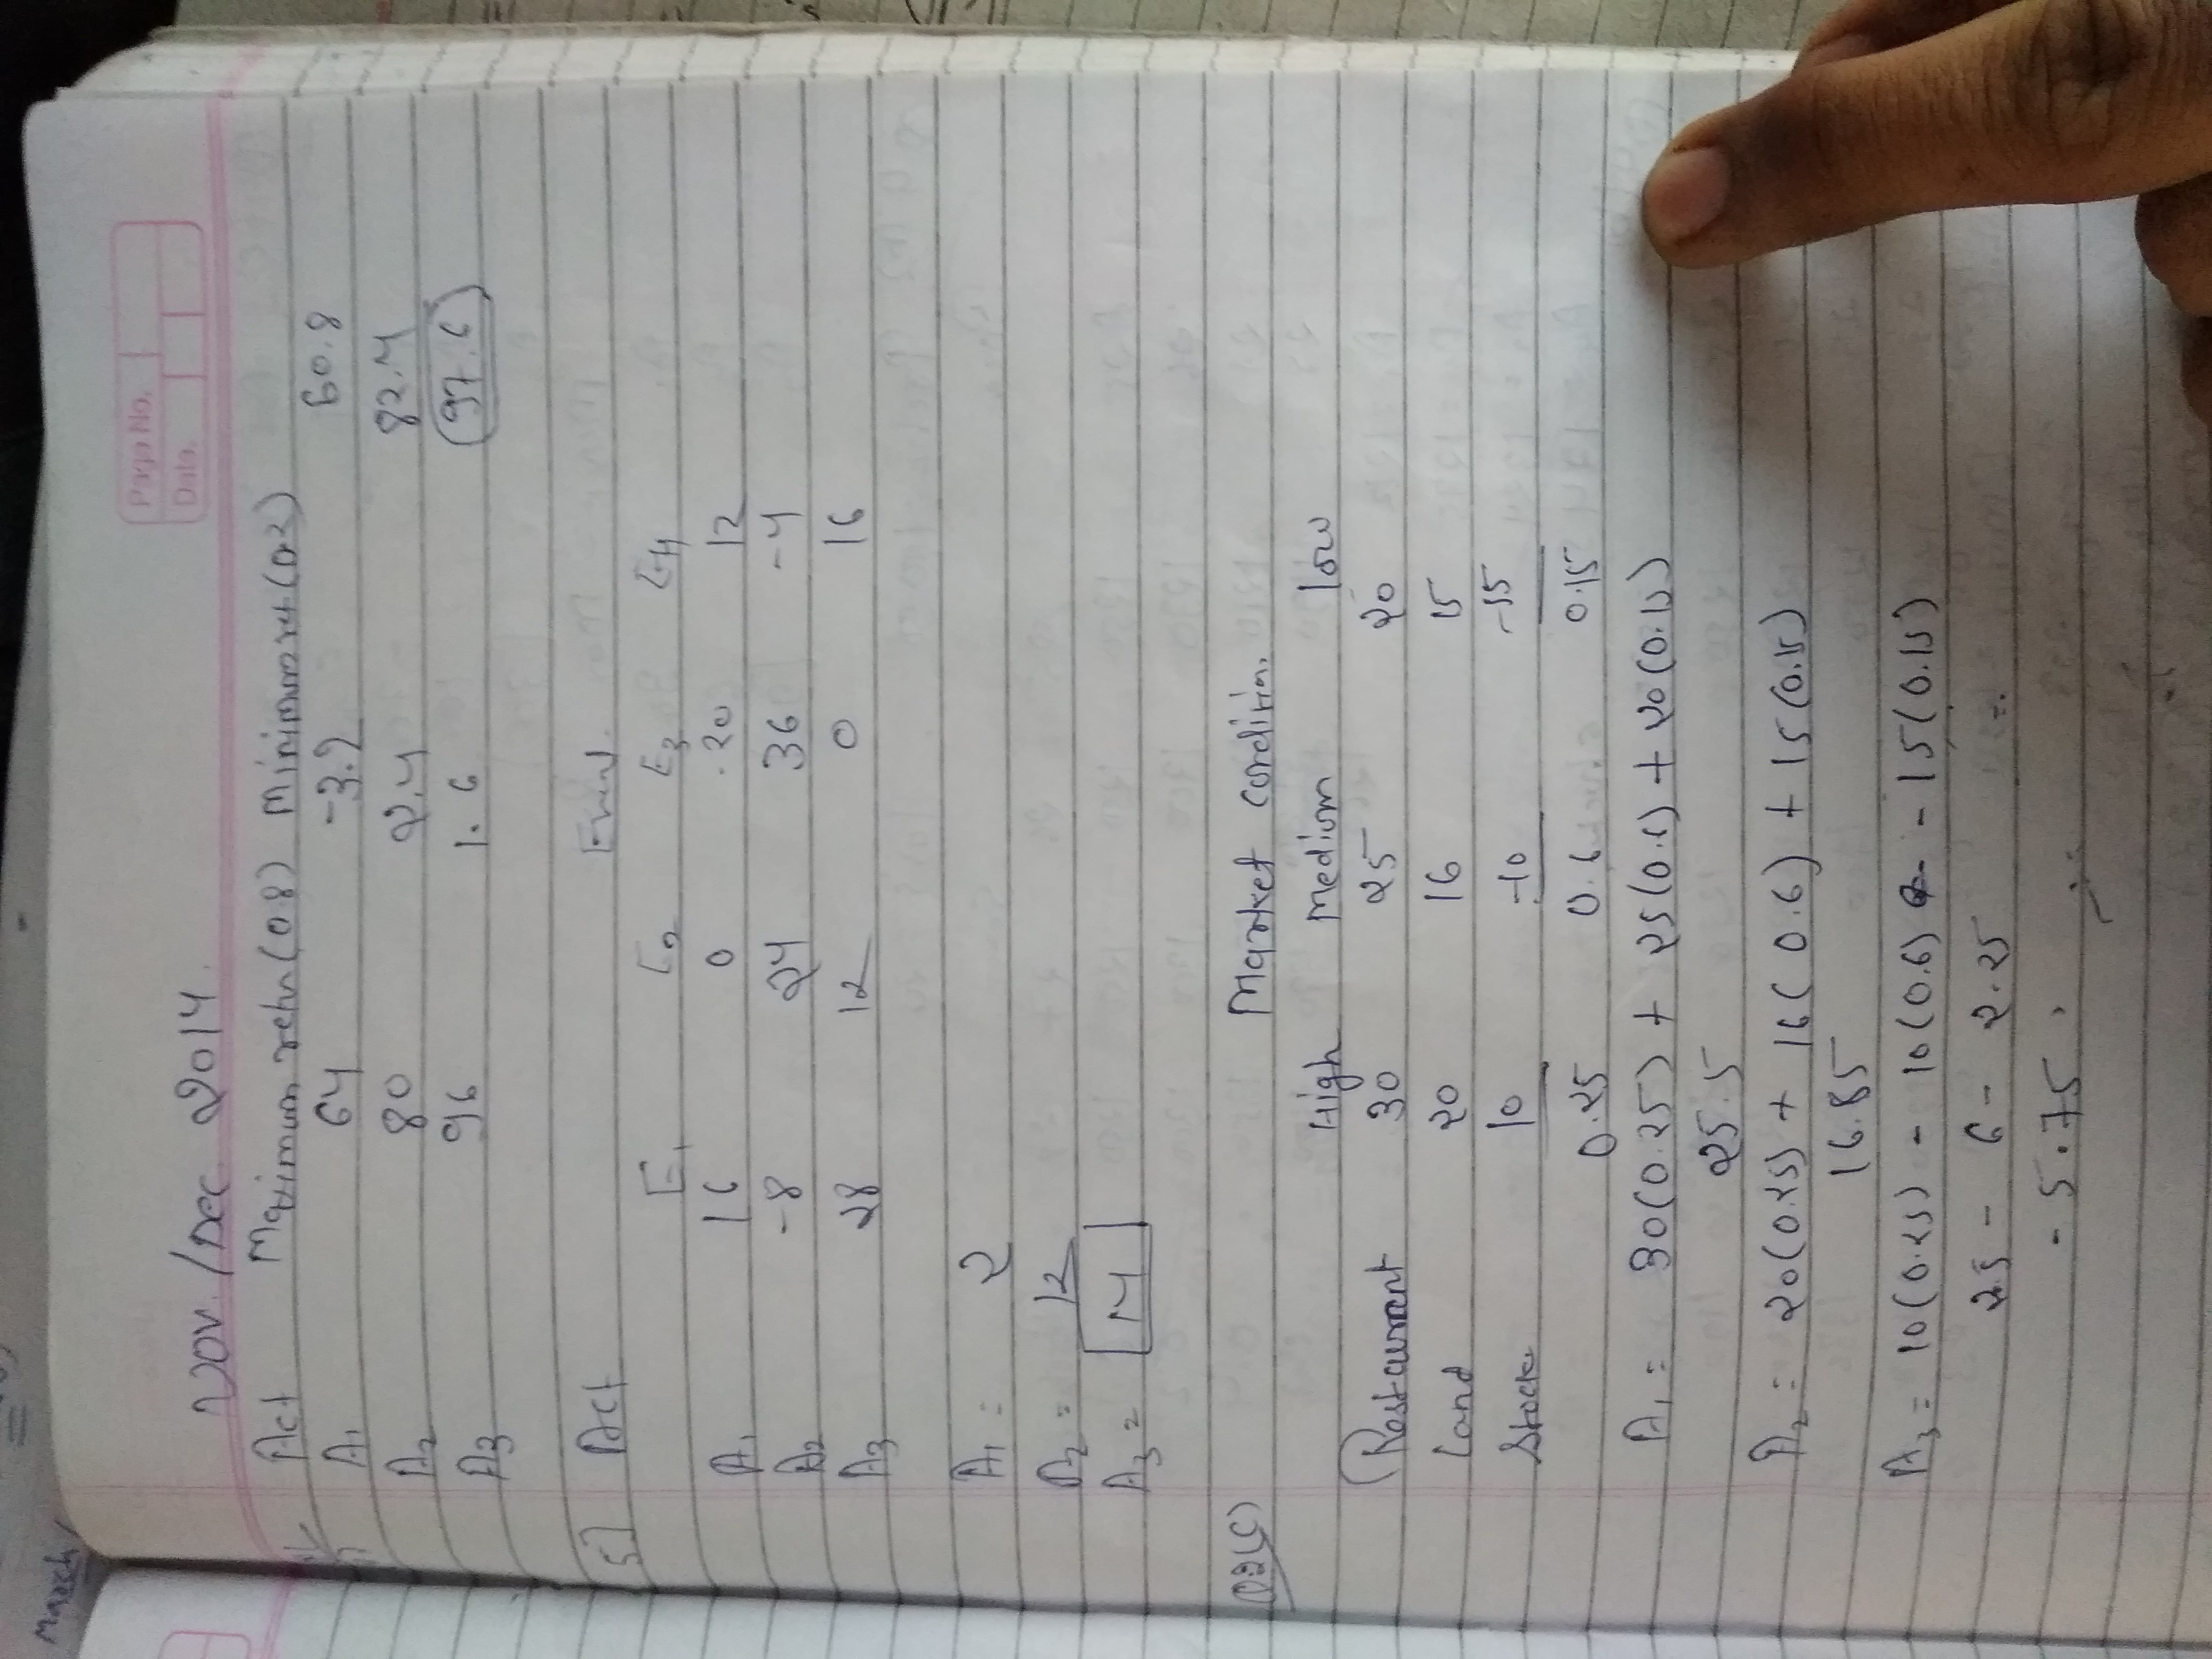 March
Page No.
Date.
Nov. /Dec. 2014.
Act Maximum retn (0.8) Minimum ret (0.2)
A1 64 -3.2 60.8
A2 80 2.4 82.4
A3 96 1.6 97.6
5) Act Event.
E1 E2 E3 E4
A1 16 0 .20 12
A2 -8 24 36 -4
A3 28 12 0 16
A1 = 2
A2 = 12
A3 = 14
Q2(C) Market condition.
High Medium low
Restaurant 30 25 20
Land 20 16 15
Stock 10 -10 -15
0.25 0.6 0.15
A1 = 30(0.25) + 25(0.6) + 20(0.15)
25.5
A2 = 20(0.25) + 16(0.6) + 15(0.15)
16.85
A3 = 10(0.25) - 10(0.6) - 15(0.15)
2.5 - 6 - 2.25
- 5.75.